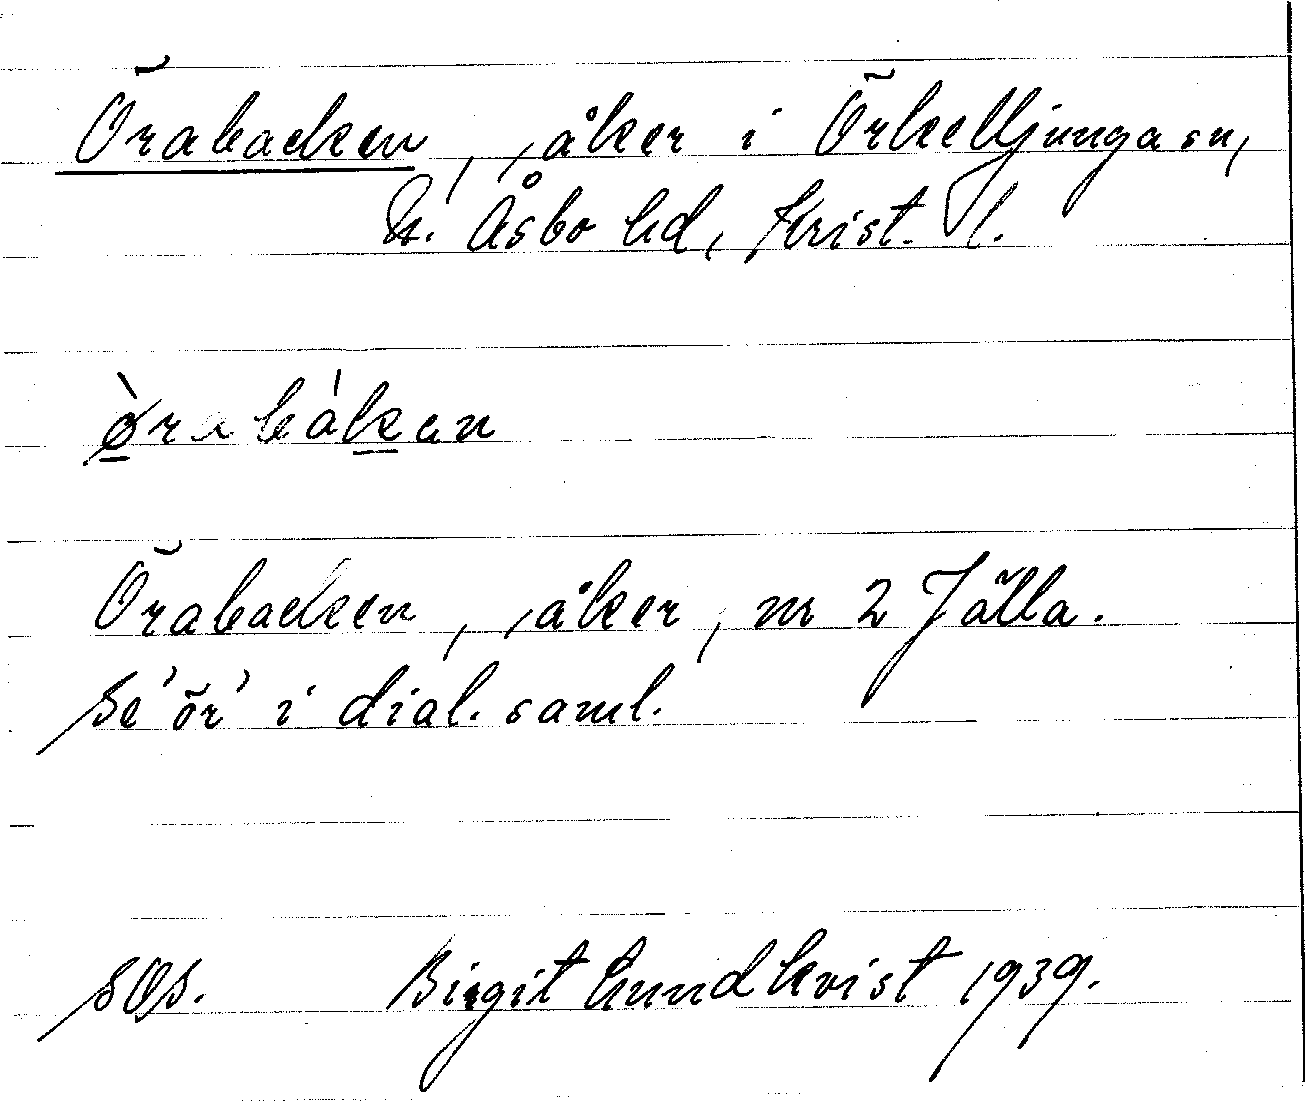 Örabacken, åker i Örkelljunga sn,
N. Åsbo hd, Krist. l.
ø̀rabákan
Örabacken, åker, nr 2 Jälla.
Se 'ör' i dial. saml.
SOS. Birgit Lundkvist 1939.